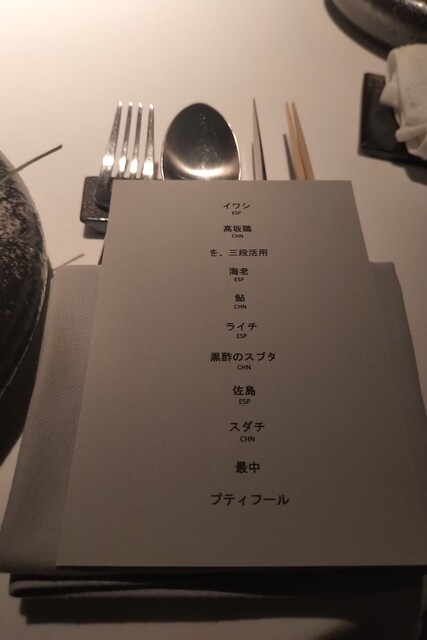 イワシ
ESP
高坂鶏
CHN
を、三段活用
海老
ESP
鮎
CHN
ライチ
ESP
黒酢のスブタ
CHN
佐島
ESP
スダチ
CHN
最中
プティフール